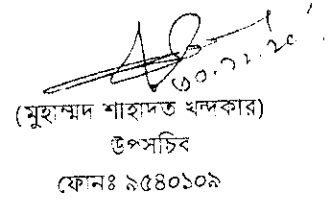 (মুহাম্মদ শাহাদত খন্দকার)
উপসচিব
ফোনঃ ৯৫৪০১০৯